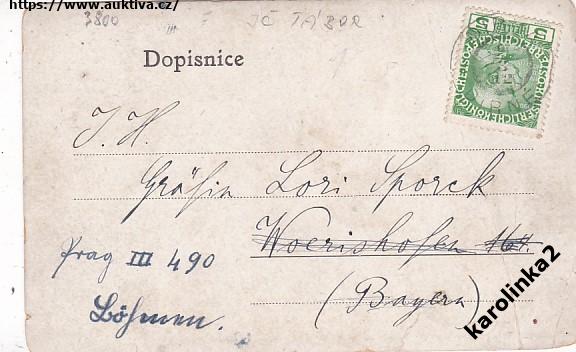 https://www.auktiva.cz/
3800 IČ TÁBOR
Dopisnice
5 5
KAISERLICHE KÖNIGLICHE ÖSTERREICHISCHE
J. H.
Gräfin Lori Sporck
Woerishofen 164.
Prag III 490
(Bayern)
Böhmen.
karolinka2